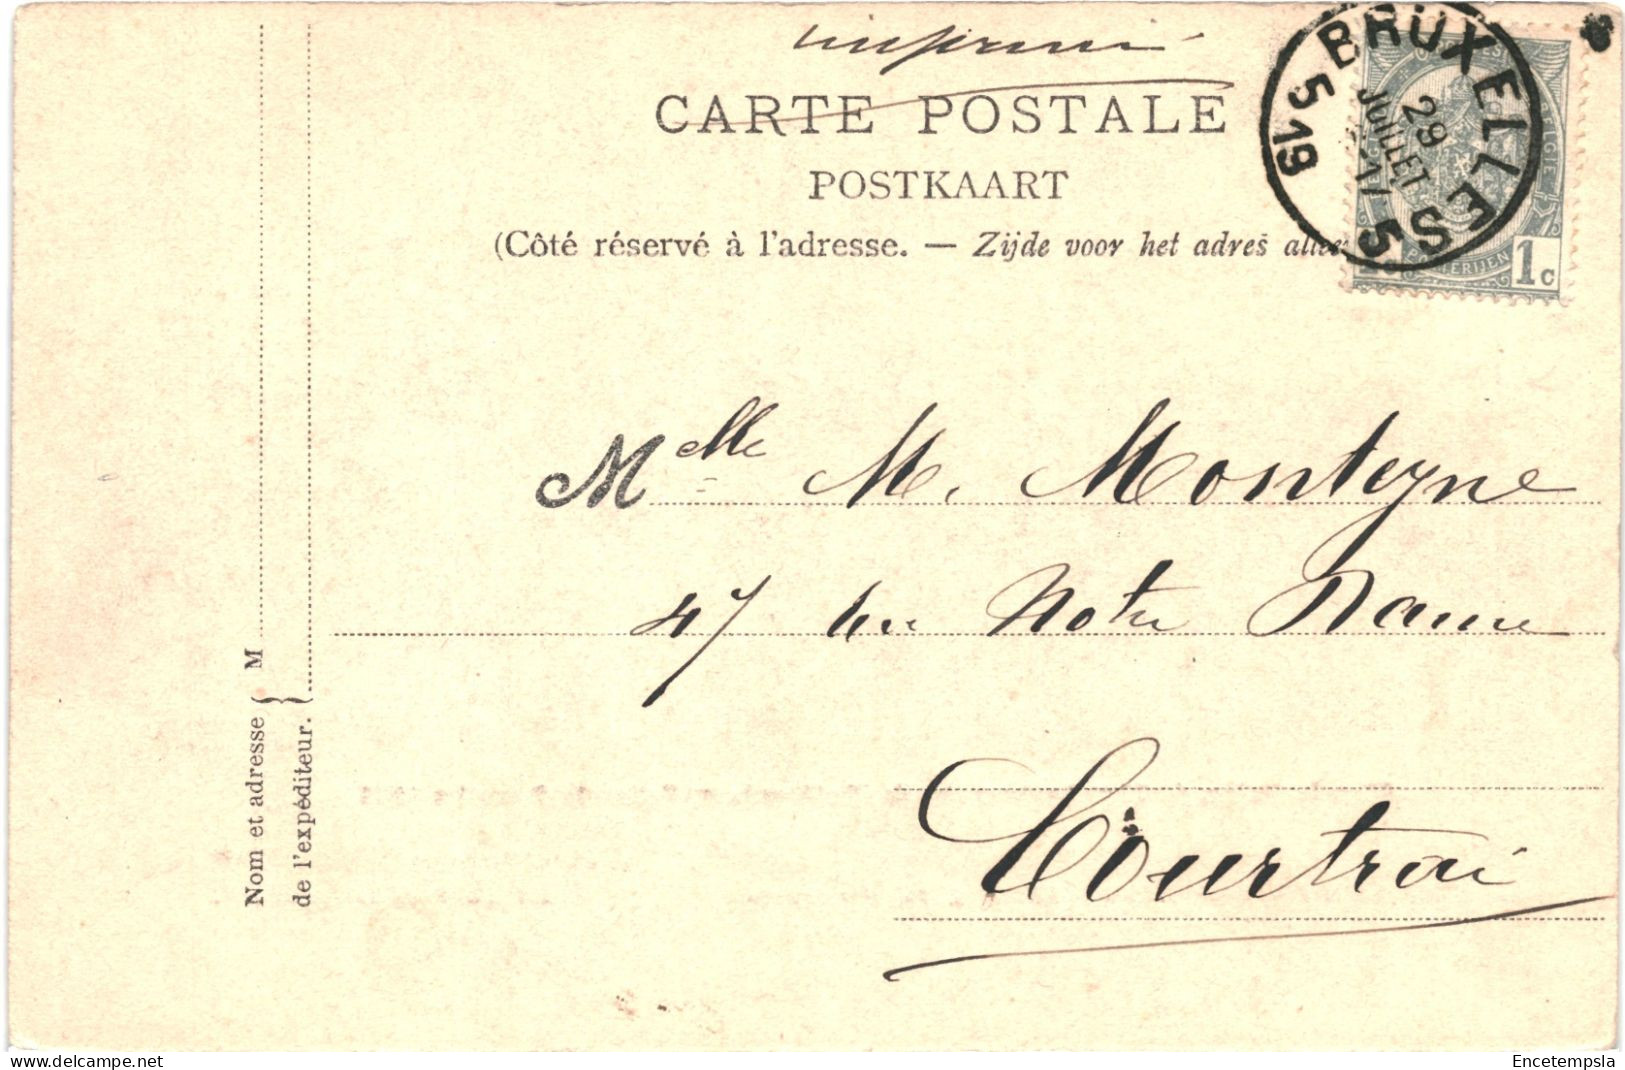 imprimé
CARTE POSTALE
POSTKAART
(Côté réservé à l'adresse. — Zijde voor het adres
BRUXELLES 5
29
JUILLET
5 19
1c
Mlle M. Monteyne
47 rue Notre Dame
Courtrai
Nom et adresse
de l'expéditeur.
M
delcampe.net
Encetempsla